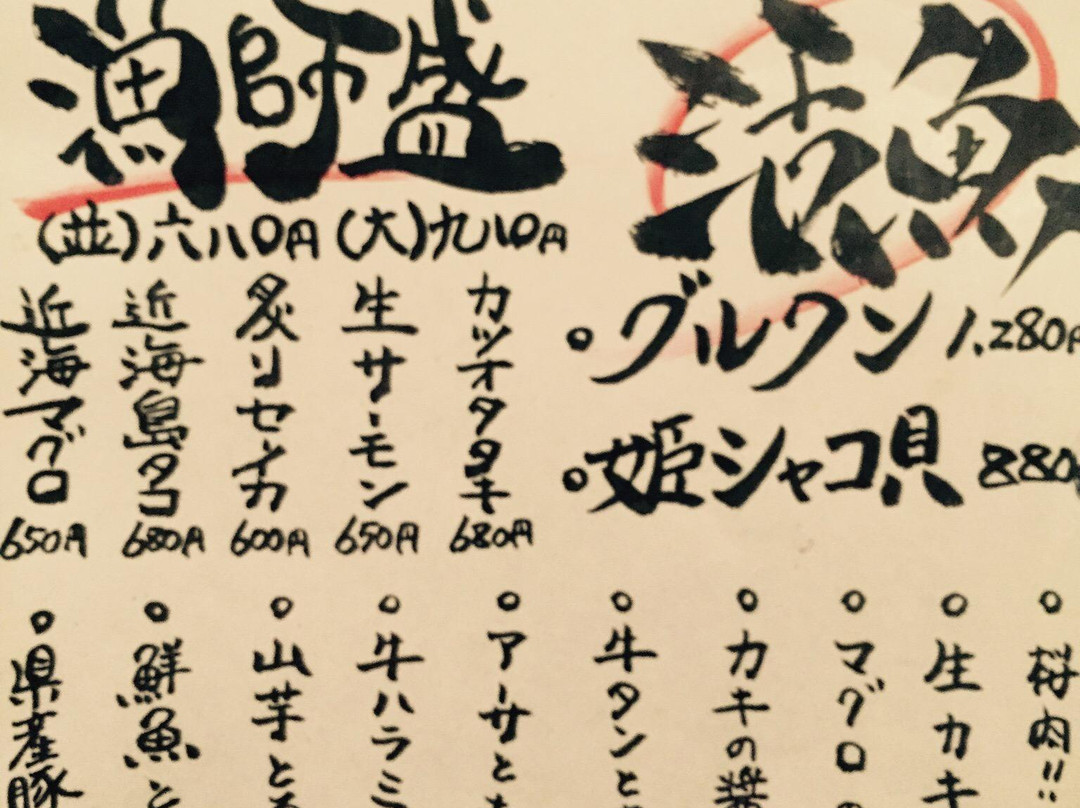 漁師盛
(並)六八〇円(大)九八〇円
活魚
グルクン 1,280円
姫シャコ貝 880
カツオタタキ 680円
生サーモン 650円
炙りセーイカ 600円
近海島タコ 680円
近海マグロ 650円
桜肉!!
生カキ
マグロの
カキの醤
牛タンと
アーサと
牛ハラミ
山芋と
鮮魚と
県産豚